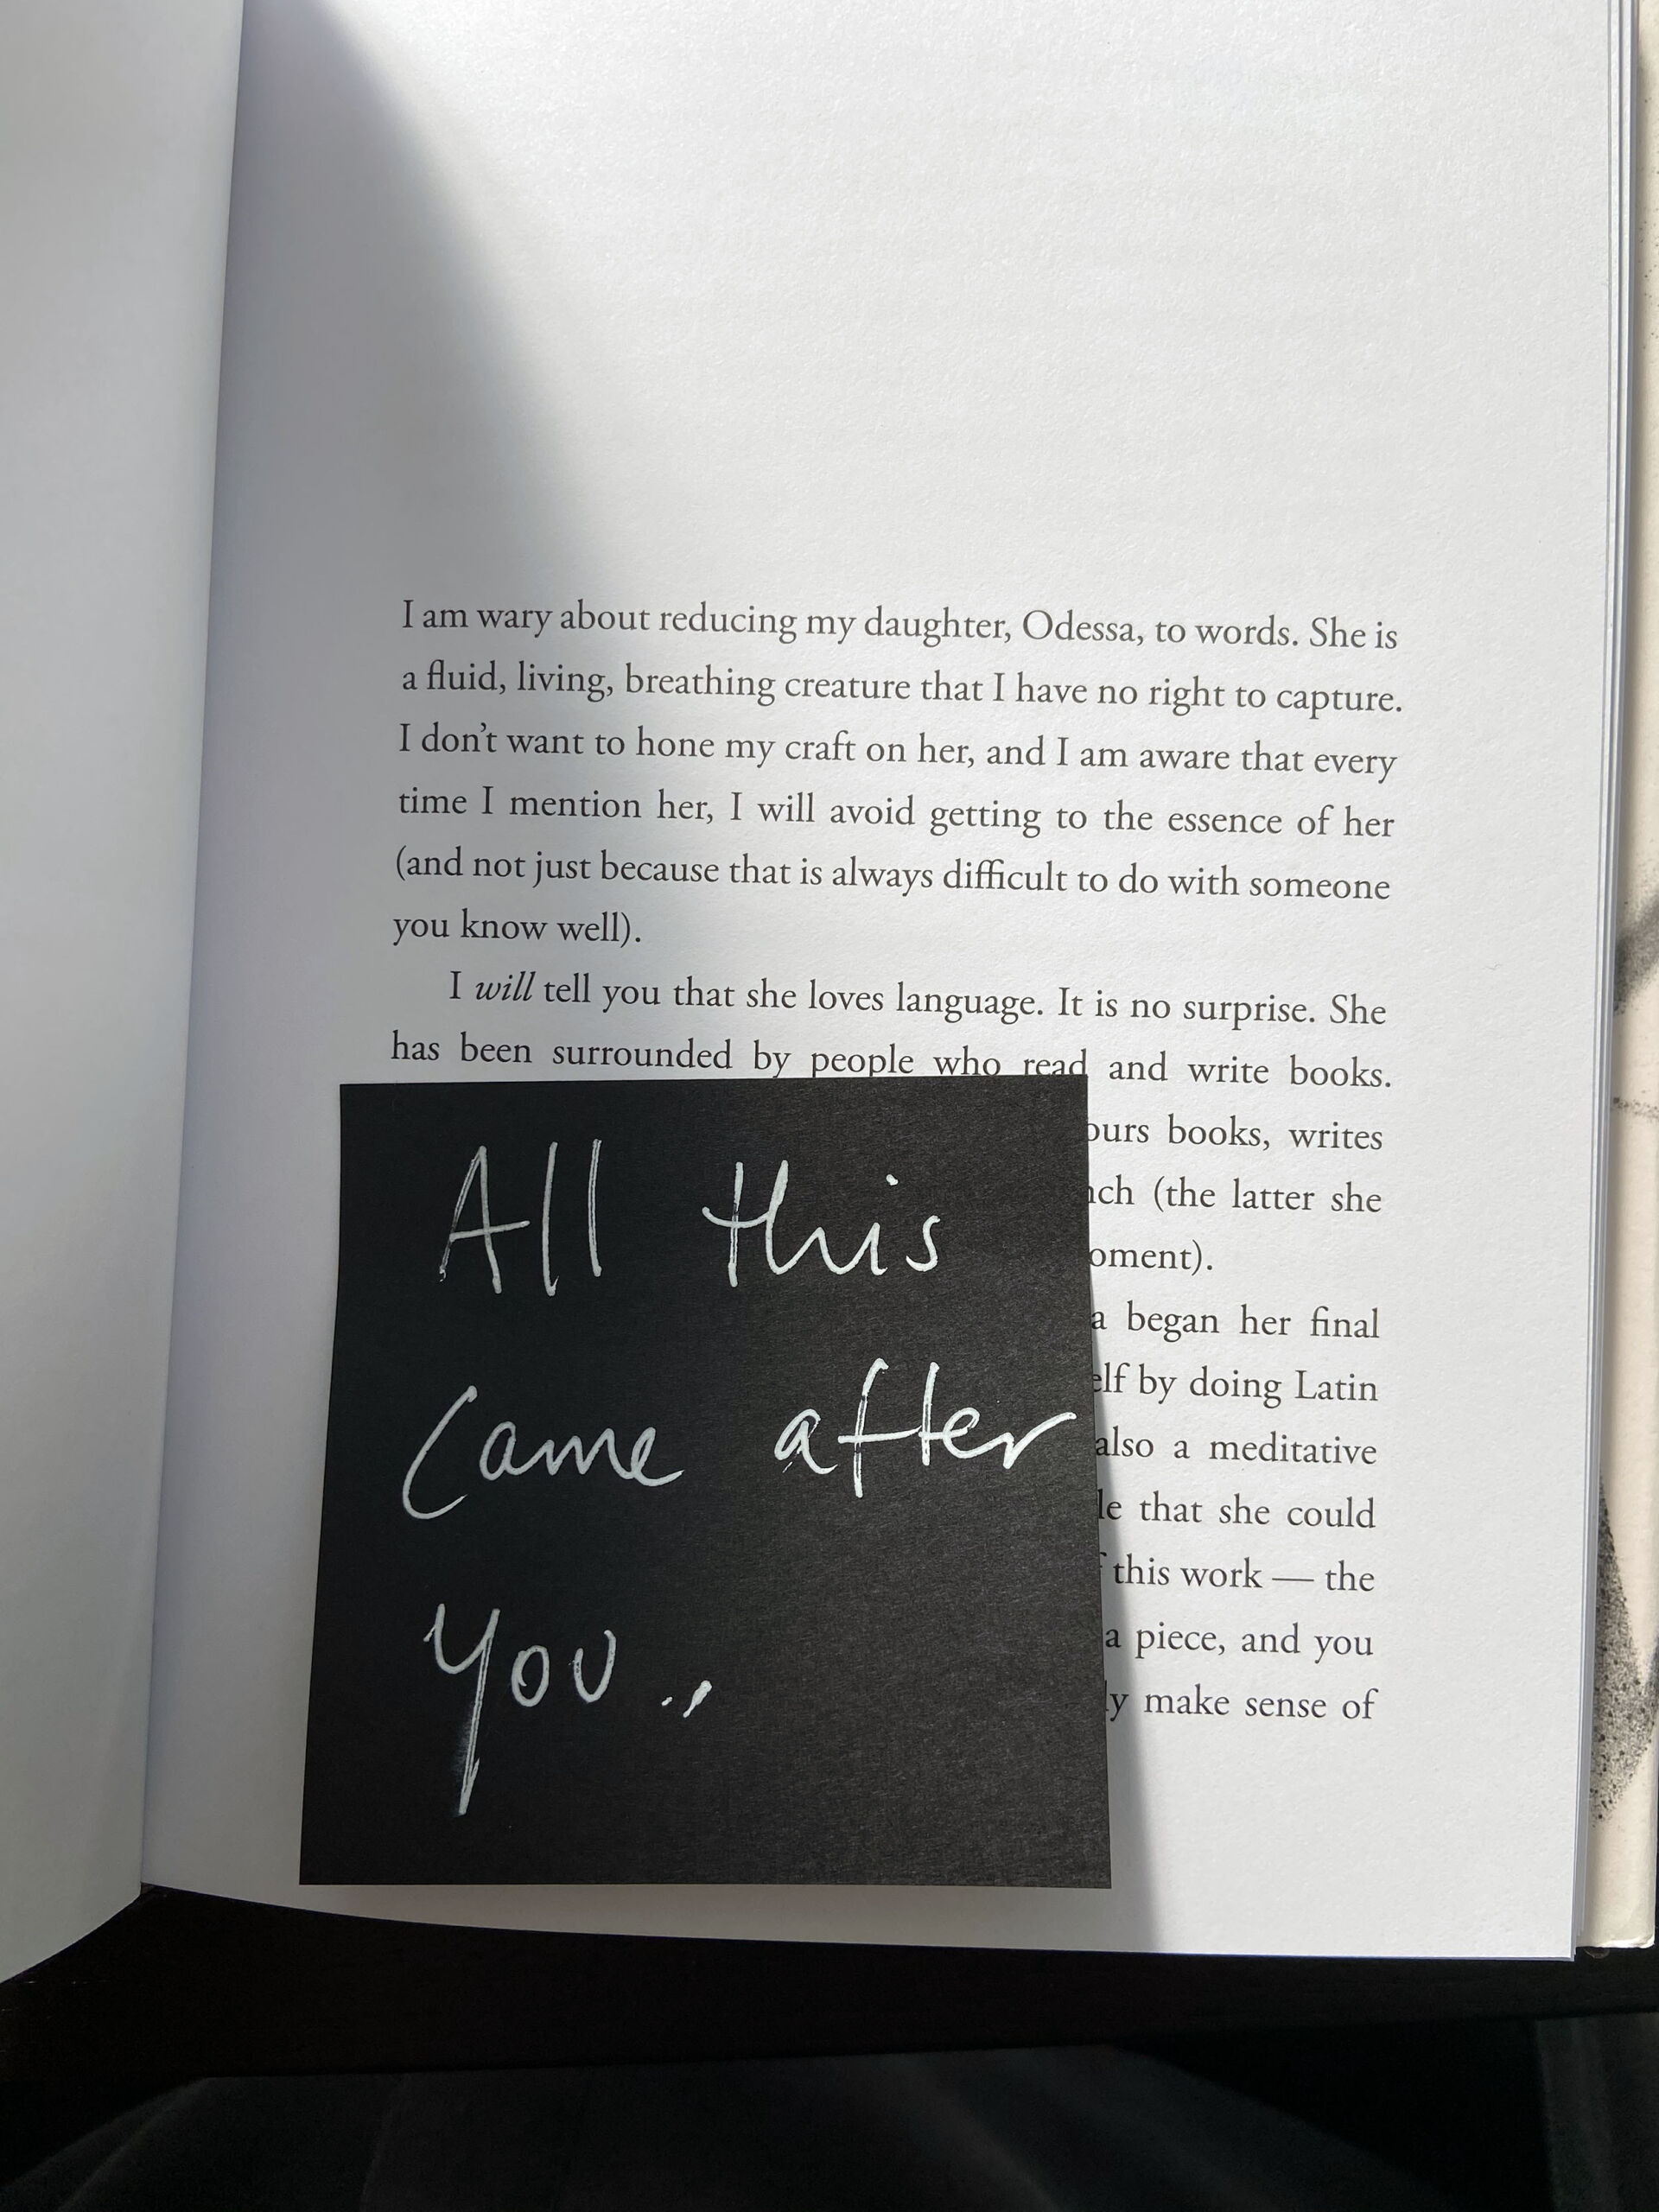 I am wary about reducing my daughter, Odessa, to words. She is
a fluid, living, breathing creature that I have no right to capture.
I don’t want to hone my craft on her, and I am aware that every
time I mention her, I will avoid getting to the essence of her
(and not just because that is always difficult to do with someone
you know well).
I will tell you that she loves language. It is no surprise. She
has been surrounded by people who read and write books.
books, writes
(the latter she
began her final
by doing Latin
also a meditative
that she could
this work — the
a piece, and you
make sense of
All this
Came after
You..